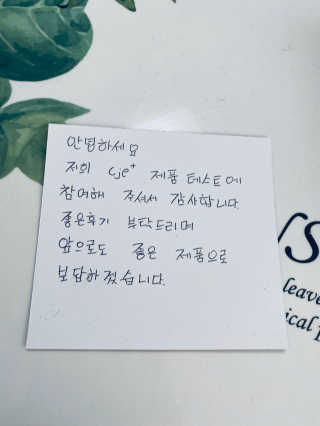 안녕하세요
저희 cje+ 제품 테스트에
참여해 주셔서 감사합니다.
좋은후기 부탁드리며
앞으로도 좋은 제품으로
보답하겠습니다.
leave
ical